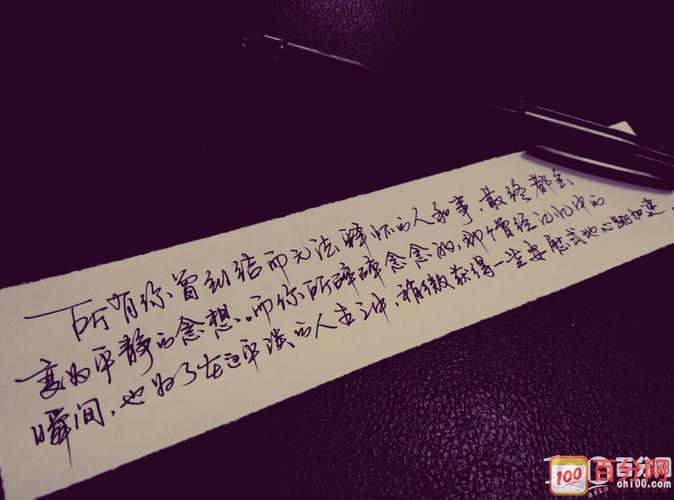 所有你曾纠结而无法释怀的人和事，最终都会
变为平静的念想。而你所碎碎念念的，那个曾经记忆中的
瞬间，也为了在这平淡的人生之中，稍微获得一些 心跳加速
百分网
oh100.com
100
百分网